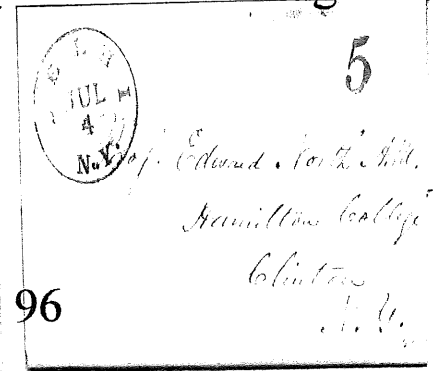 DELHI
JUL
4
N.Y.
5
Prof. Edward North
Hamilton College
Clinton
N.Y.
96